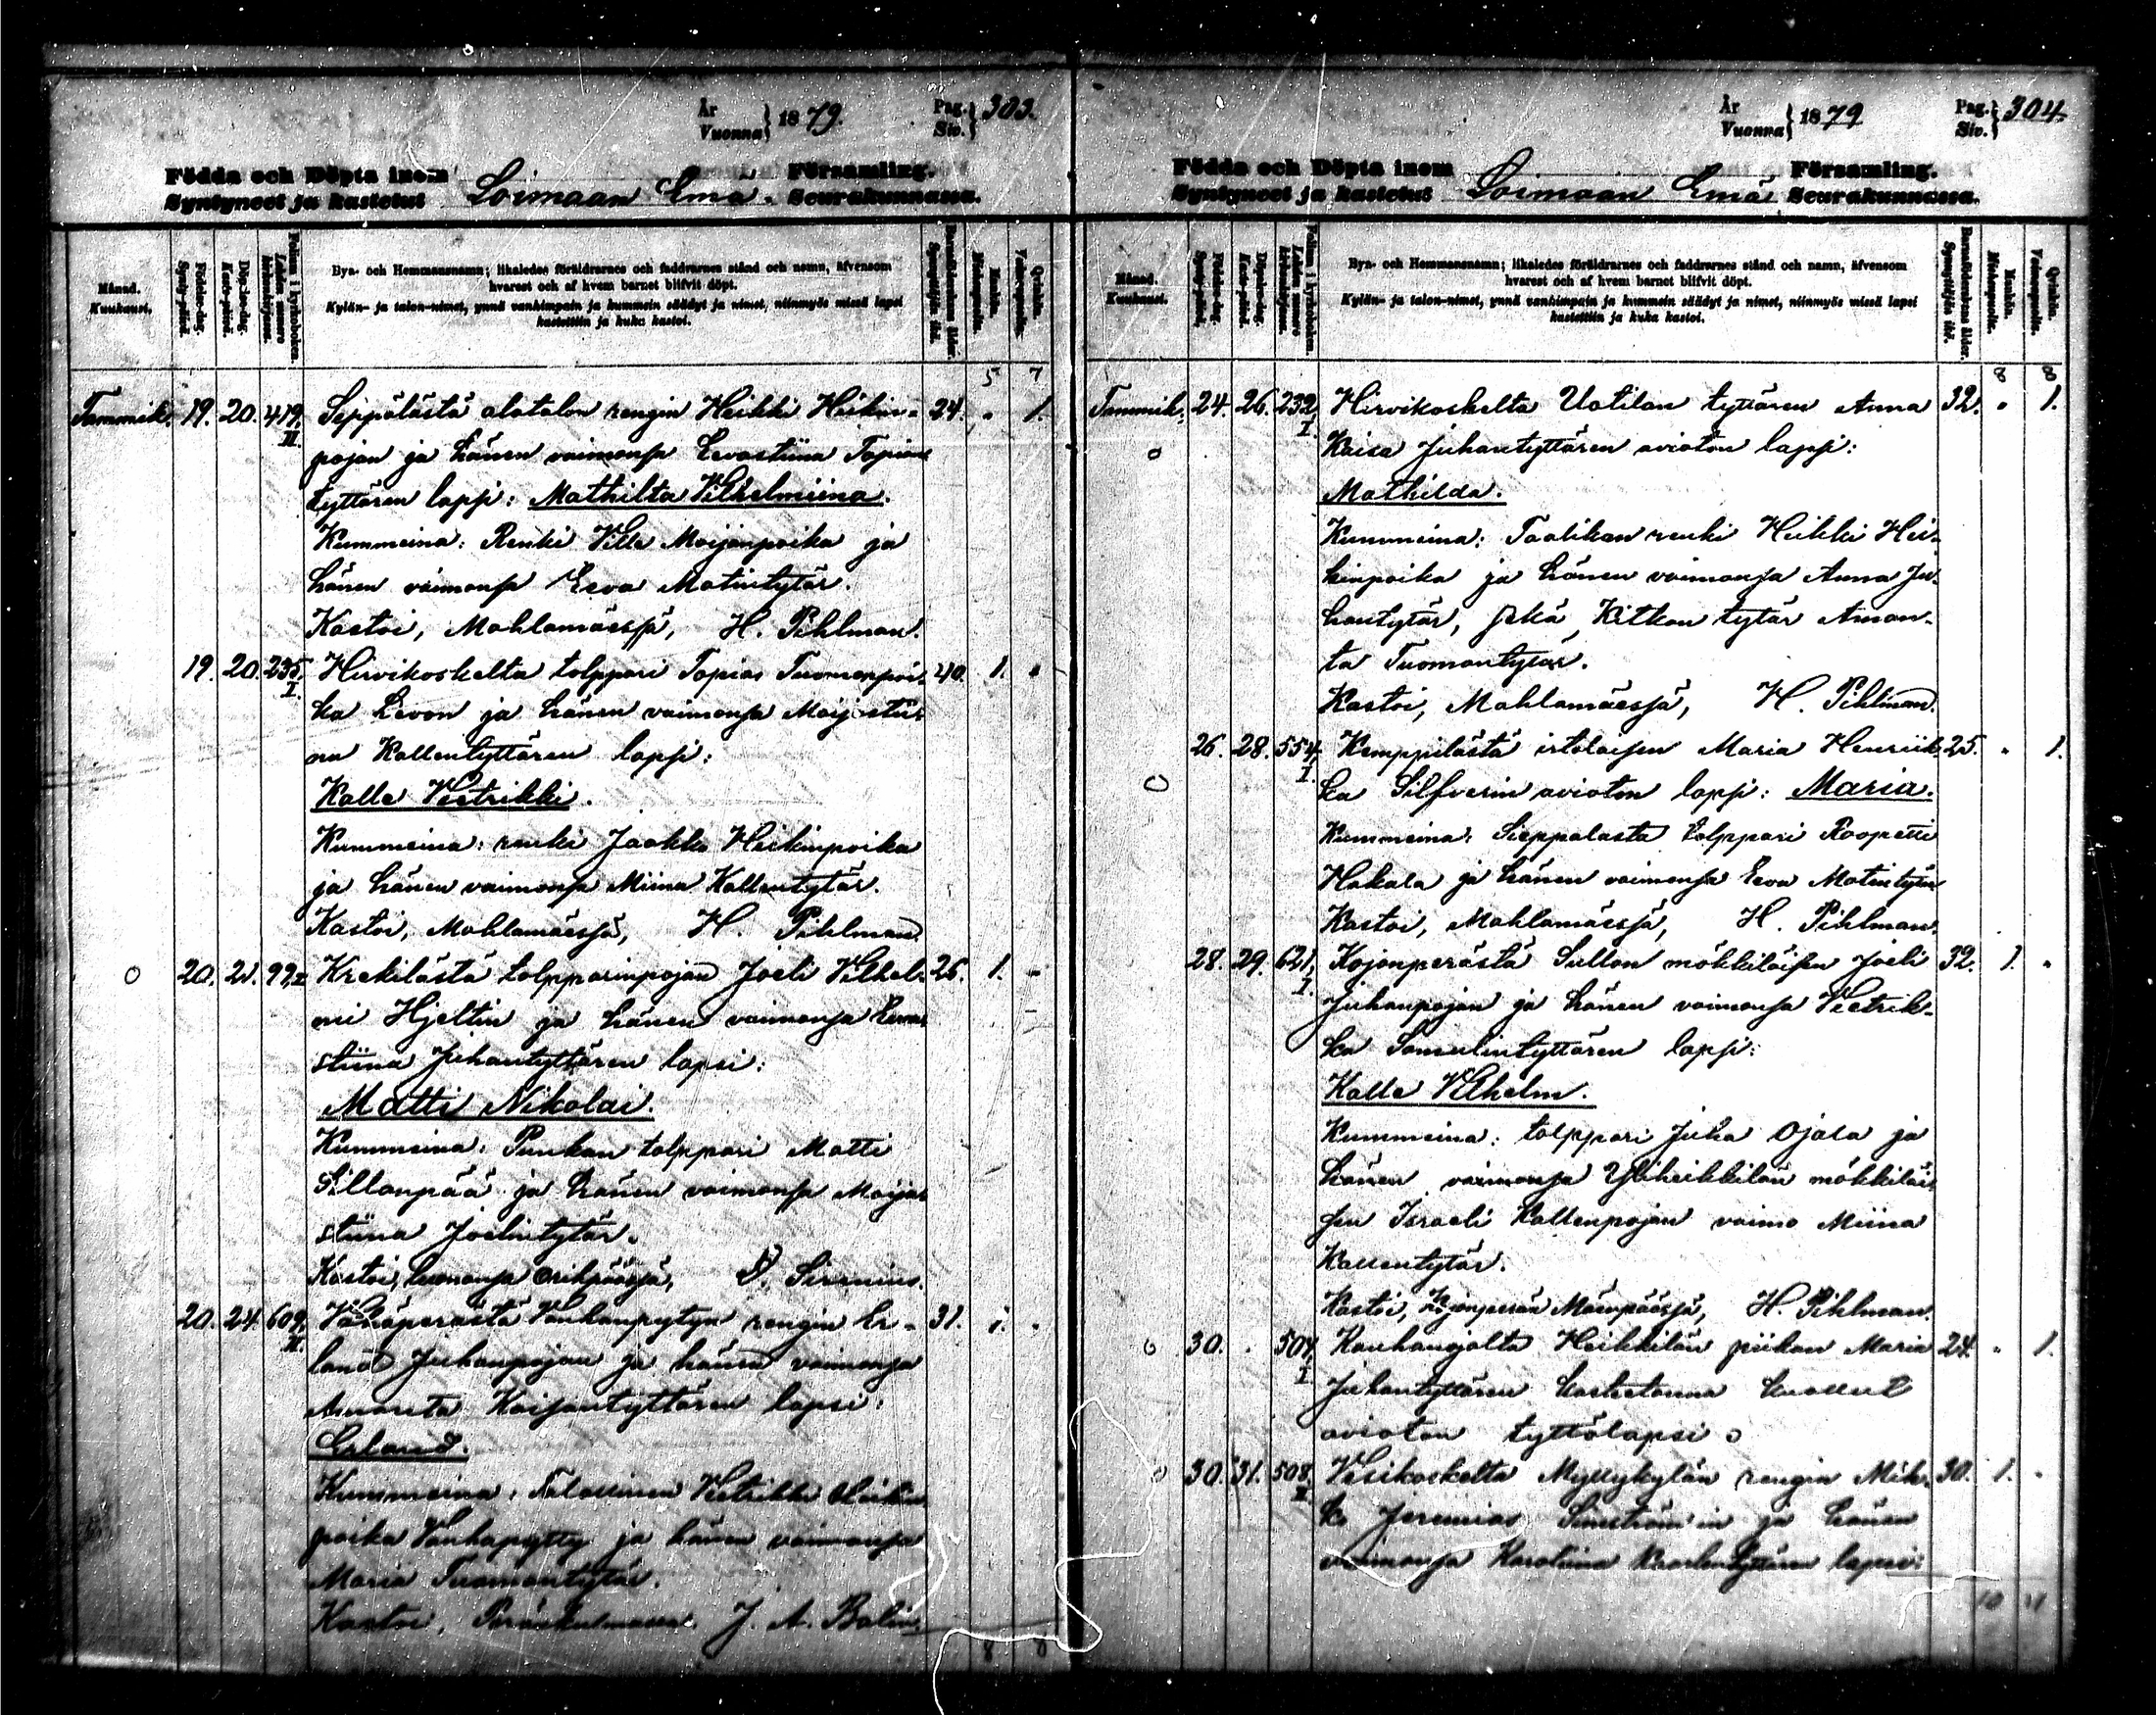 År
Vuonna } 1879.
Pag.
Siv. } 303.
Födda och Döpta inom
Syntyneet ja kastetut Loimaan Emä. Församling.
Seurakunnassa.
Månad.
Kuukausi.
Födelse-dag.
Synty-päivä.
Döpelse-dag.
Kaste-päivä.
Folium i kyrkoboken.
Lehden numero kirkonkirjassa.
Bya- och Hemmansnamn; likaledes föräldrarnes och faddrarnes stånd och namn, äfvensom
hvarest och af hvem barnet blifvit döpt.
Kylän- ja talon-nimet, ynnä vanhimpain ja kummein säädyt ja nimet, niinmyös missä lapsi
kastettiin ja kuka kastoi.
Barnaföderskans ålder.
Synnyttäjän ikä.
Mankön.
Miehenpuolta.
Qvinkön.
Vaimonpuolta.
5 7
Tammik. 19. 20. 419. II. Seppälästä alatalon rengin Heikki Heikin- 24. " 1.
pojan ja hänen vaimonsa Eevastiina Tapian
tyttären lapsi: Mathilta Vilhelmiina.
Kummeina: Renki Ville Maijanpoika ja
hänen vaimonsa Eeva Matintytär.
Kastoi, Mahlamäessä, H. Pihlman.
19. 20. 235. I. Hirvikoskelta tolppari Topias Tuomanpoi- 40. 1. "
ka Levon ja hänen vaimonsa Maijastii-
na Kallentyttären lapsi:
Kalle Vietrikki.
Kummeina: renki Jaakko Heikinpoika
ja hänen vaimonsa Miina Kallentytär.
Kastoi, Mahlamäessä, H. Pihlman.
0 20. 21. 92. I Krekilästä tolpparinpojan Joeli Vilhel- 26. 1. -
mi Hjeltin ja hänen vaimonsa Eeva-
stiina Juhantyttären lapsi:
Matti Nikolai.
Kummeina: Punkan tolppari Matti
Sillanpää ja hänen vaimonsa Maija-
stiina Joelintytär.
Kastoi, luonansa Orihpäässä, Sirenius.
20. 24. 609. II. Vähäperästä Vanhanpytyn rengin Er- 31. 1. "
land Juhanpojan ja hänen vaimonsa
Amanta Kaisantyttären lapsi:
Erland.
Kummeina: Talollinen Vietrikki Heikin
poika Vanhapytty ja hänen vaimonsa
Maria Tuomantytär.
Kastoi, J. A. Bolin.
8 8
År
Vuonna } 1879
Pag.
Siv. } 304.
Födda och Döpta inom
Syntyneet ja kastetut Loimaan Emä Församling.
Seurakunnassa.
Månad.
Kuukausi.
Födelse-dag.
Synty-päivä.
Döpelse-dag.
Kaste-päivä.
Folium i kyrkoboken.
Lehden numero kirkonkirjassa.
Bya- och Hemmansnamn; likaledes föräldrarnes och faddrarnes stånd och namn, äfvensom
hvarest och af hvem barnet blifvit döpt.
Kylän- ja talon-nimet, ynnä vanhimpain ja kummein säädyt ja nimet, niinmyös missä lapsi
kastettiin ja kuka kastoi.
Barnaföderskans ålder.
Synnyttäjän ikä.
Mankön.
Miehenpuolta.
Qvinkön.
Vaimonpuolta.
8 8
Tammik. 24. 26. 232. I. Hirvikoskelta Uotilan tyttären Anna 32. " 1.
0 Kaisa Juhantyttären avioton lapsi:
Mathilda.
Kummeina: Taalikan renki Heikki Hei-
kinpoika ja hänen vaimonsa Anna Ju-
hantytär, sekä Kitkon tytär Aman-
ta Tuomantytär.
Kastoi, Mahlamäessä, H. Pihlman.
26. 28. 554. I. Kemppilästä irtolaisen Maria Henriik- 25. " 1.
0 ka Silfverin avioton lapsi: Maria.
Kummeina: Sieppalasta tolppari Roopetti
Hakala ja hänen vaimonsa Eeva Matintytär
Kastoi, Mahlamäessä, H. Pihlman.
28. 29. 621. I. Kojonperästä Sullon mökkiläisen Joeli 32. 1. "
Juhanpojan ja hänen vaimonsa Vietrik-
ka Samulintyttären lapsi:
Kalle Vilhelm.
Kummeina: tolppari Juha Ojala ja
hänen vaimonsa Yliheikkilän mökkiläi-
sen Israeli Kallenpojan vaimo Miina
Kallentytär.
Kastoi, Kojonperän Mäenpäässä, H. Pihlman.
0 30. " 504. I Kauhanojalta Heikkilän piikan Maria 24. " 1.
Juhantyttären kastetonna kuollut
avioton tyttölapsi
0 30. 31. 508. I Vesikoskelta Myllykylän rengin Mik- 30. 1. "
ko Jeremias ja hänen
vaimonsa Karoliina Kaarlentyttären lapsi:
10 11